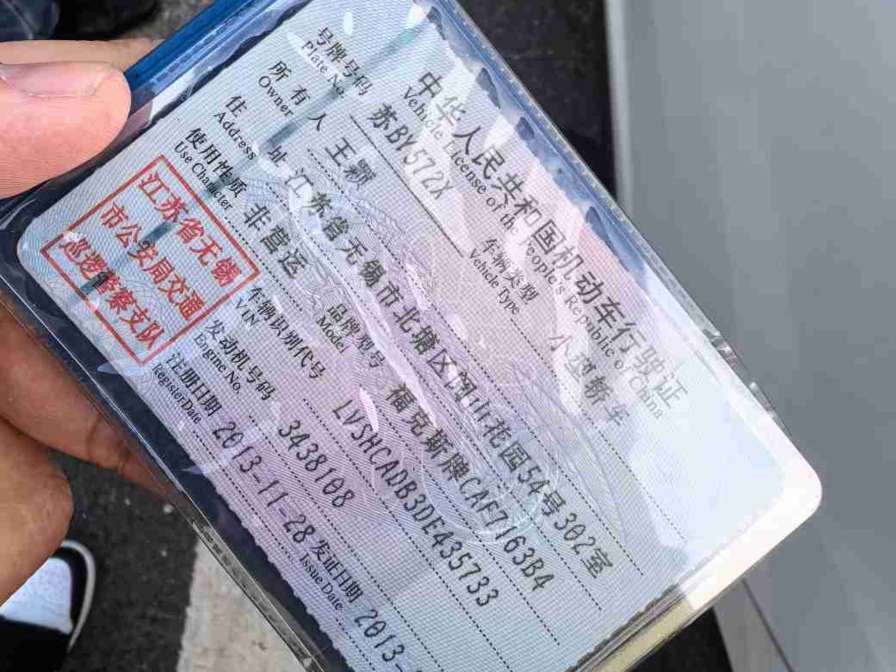 中华人民共和国机动车行驶证
Vehicle License of the People's Republic of China
号牌号码 苏BY572X 车辆类型 小型轿车
Plate No. Vehicle Type
所有人 王颖
Owner
住址 江苏省无锡市北塘区闽山花园54号302室
Address
使用性质 非营运 品牌型号 福克斯牌CAF7163B4
Use Character Model
江苏省无锡
市公安局交通
巡逻警察支队
车辆识别代号 LVSHCADB3DE435733
VIN
发动机号码 3438108
Engine No.
注册日期 2013-11-28 发证日期 2013-
Register Date Issue Date